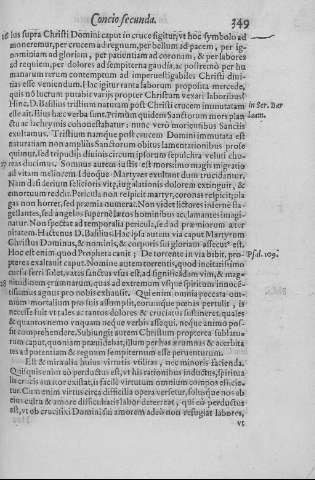 Concio secunda. 349
16 los supra Christi Domini caput in cruce figitur, vt hoc symbolo ad
moneremur, per crucem ad regnum, per bellum ad pacem, per ig-
nominiam ad gloriam, per patientiam ad coronam, & per labores
ad requiem, per dolores ad sempiterna gaudia, ac postremò per hu
manarum rerum contemptum ad imperuestigabiles Christi diui
tias esse veniendum. Hac igitur tanta laborum proposita mercede,
quis nō huius pugnæ varijs propter Christum vexari laboribus?
Hinc D. Basilius tristium naturam post Christi crucem immutatam
esse ait. Eius hæc verba sunt. Primùm quidem Sanctorum mors plan
ctu ac lachrymis cohonestabatur: nunc verò morientibus Sanctis
exultamus. Tristium namque post crucem Domini immutata est
natura: iam non ampliùs Sanctorum obitus lamentationibus prose
quimur, sed tripudijs diuinis circum ipsorum sepulchra veluti cho-
17 reas ducimus. Somnus autem iustis est mors: imo magis migratio
ad vitam meliorem. Ideoque Martyres exultant dum trucidantur.
Nam desiderium felicioris vitæ, iugulationis dolorem extinguit, &
emortuum reddit. Pericula non respicit martyr, coronas respicit; pla
gas non horret, sed præmia numerat. Non videt lictores infernè fla-
gellantes, sed angelos supernè lætos hominibus acclamantes imagi-
natur. Non spectat ad temporalia pericula, sed ad præmiorum æter
nitatem. Hactenus D. Basilius. Hac ipsa autem via caput Martyrum
Christus Dominus, & nominis, & corporis sui gloriam assecutus est.
Hoc est enim quod Propheta canit; De torrente in via bibit, pro-
pterea exaltauit caput. Nomine autem torrentis, quod incitatissimo
cursu ferri solet, vates sanctus vsus est, ad significandam vim, & mag-
18 nitudinem ærumnarum, quas ad extremum vsque spiritum innocē-
tissimus agnus pro nobis exhausit. Qui enim omnia peccata om-
nium mortalium pro suis assumpsit, eorumque pœnas pertulit, is
necesse fuit vt tales ac tantos dolores & cruciatus sustineret, quales
& quantos nemo vnquam neque verbis assequi, neque animo pos-
sit comprehendere. Subiungit autem Christum propterea sublatu-
rum caput, quoniam prænidebat, illum per has ærumnas & acerbita
tes ad potentiam & regnum sempiternum esse peruenturum.
Est & mirabilis huius virtutis vtilitas, nec minoris facienda.
Quisquis enim eò perductus est, vt his rationibus inductus, spiritua
lis crucis amator existat, is facilè virtutum omnium compos effecie-
tur. Cùm enim virtus circa difficilia opera versetur, solumque nos ab
eius cultu & amore difficultatis labor deterreat, qui eò perductus
est, vt ob crucifixi Domini sui amorem adeò non refugiat labores,
vt
in Ser. Bar
laam.
Psal. 109.